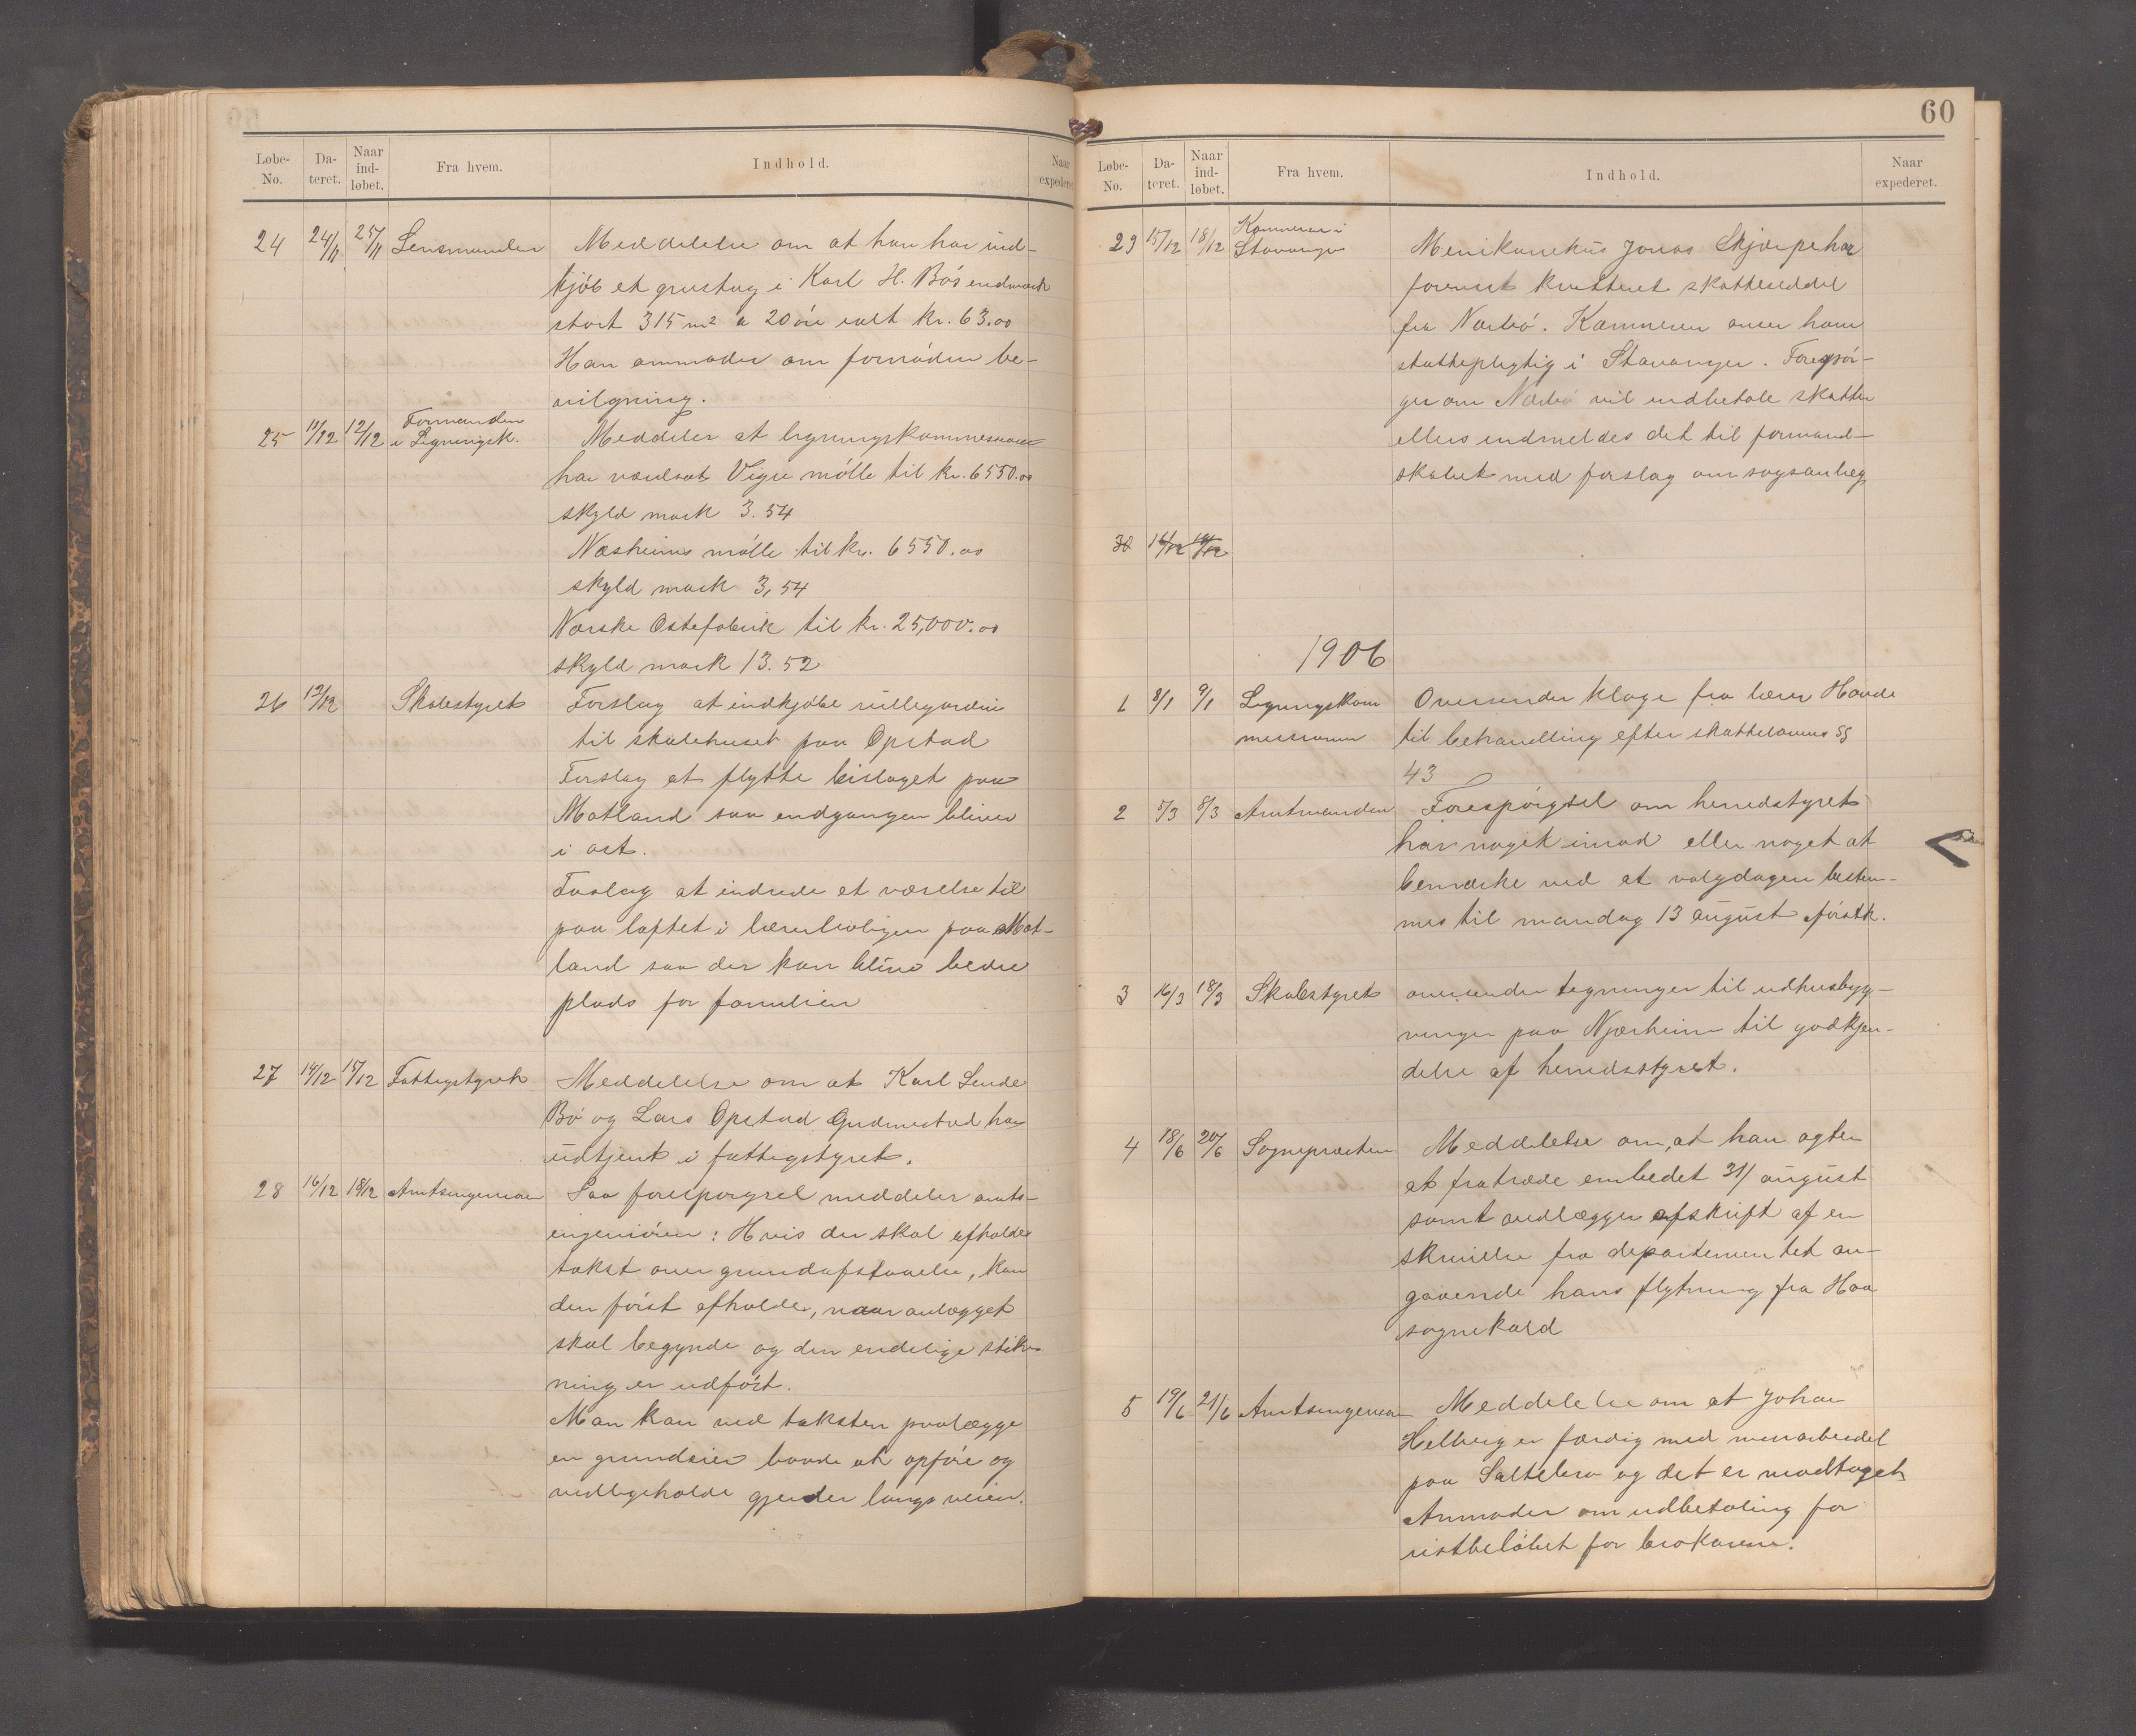 60
Løbe-No. Da-teret. Naar ind-løbet. Fra hvem. Indhold. Naar expederet
24 24/11 25/11 Lensmanden Meddelelse om at han har ind-
kjøb et grustag i Karl H. Bös endmark
stort 315 m2 a 20 öre ialt kr. 63.00
Han anmoder om fornöden be-
vilgning.
25 11/12 12/12 Formanden i Ligningsk. Meddeler at ligningskommissionen
har værdsat Vigre mölle til kr. 6550.00
skyld mark 3.54
Næsheims mölle til kr. 6550.00
skyld mark 3,54
Norske Ostefabrik til kr. 25,000.00
skyld mark 13.52
26 12/12 Skolestyret Forslag at indkjøbe rullegardin
til skolehuset paa Opstad
Forslag at flytte bislaget paa
Motland saa endgangen bliver
i ost.
Forslag at indrede et værelse til
paa loftet i lærerboligen paa Mot-
land saa der kan blive bedre
plads for familien
27 14/12 15/12 Fattigstyret Meddelelse om at Karl Lende
Bö og Lars Opstad Gudmestad har
udtjent i fattigstyret.
28 16/12 18/12 Amtsingeniøren Paa forespørgsel meddeler amts-
ingeniören: Hvis der skal afholdes
takst over grundafstaaelse, kan
den först afholdes, naar anlægget
skal begynde og den endelige stik-
ning er udfört.
Man kan ved taksten paalægge
en grundeier baade at opföre og
vedligeholde gjerder langs veien.
Løbe-No. Da-teret. Naar ind-løbet. Fra hvem. Indhold. Naar expederet.
29 15/12 18/12 Kæmneren i Stavanger Menikanikus Jonas Skjærpe har
forevist kvitteret skatteseddel
fra Nærbö. Kæmneren anser ham
skattepligtig i Stavanger. Forespör-
ger om Nærbö vil indbetale skatten
ellers indmeldes det til formand-
skabet med forslag om sagsanlæg
30 16/12 19/12
1906
1 8/1 9/1 Ligningskom Oversender klage fra lærer Haade
missionen til behandling efter skattelovens §§
43
2 5/3 8/3 Amtmanden Forespörgsel om herredstyret
har noget imod eller noget at
bemærke ved at valgdagen bestem-
mes til mandag 13 august förstk.
3 16/3 18/3 Skolestyret oversender tegninger til udhusbyg-
ninger paa Njærheim til godkjen-
delse af herredsstyret.
4 18/6 20/6 Sognepræsten Meddelelse om, at han agter
at fratræde embedet 31/ august
samt vedlægger afskrift af en
skrivelse fra departementet an-
gaaende hans flytning fra Haa
sognekald
5 19/6 21/6 Amtsingeniøren Meddelelse om at Johan
Helberg er færdig med murarbeidet
paa Saltebro og det er modtaget
Anmoder om udbetaling for
restbelöbet for brokarene.